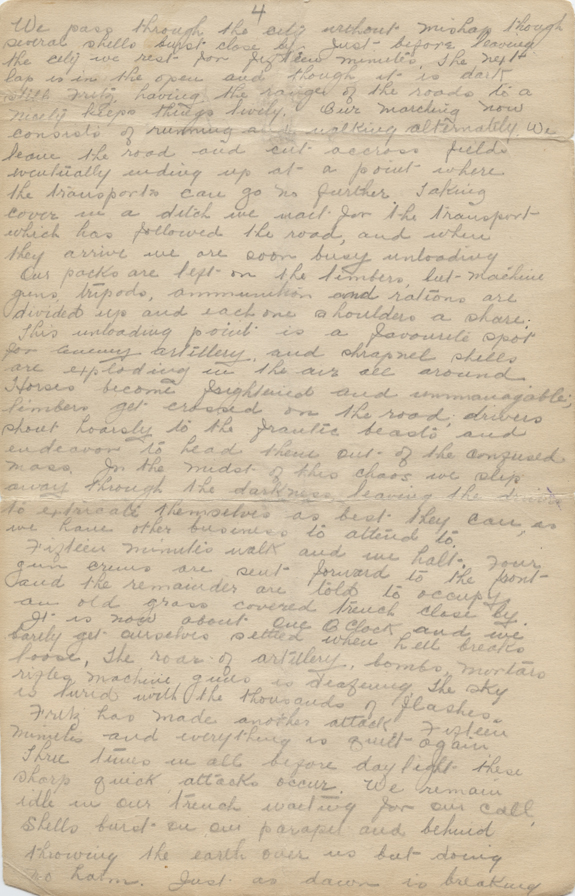 4
We pass through the city without mishap though
several shells burst close by. Just before leaving
the city we rest for fifteen minutes. The next
lap is in the open and though it is dark
still Fritz, having the ranger of the roads to a
nicety keeps things lively. Our marching now
consists of running and walking alternately. We
leave the road and cut accross fields
eventually ending up at a point where
the transports can go no further. Taking
cover in a ditch we wait for the transport
which has followed the road, and when
they arrive we are soon busy unloading
Our packs are left on the limbers, but machine
guns tripods, ammunition and rations are
divided up and each one shoulders a share.
This unloading point is a favourite spot
for enemy artillery, and shrapnel shells
are exploding in the air all around.
Horses become frightened and unmanagable;
limbers get crossed on the road; drivers
shout hoarsly to the frantic beasts and
endeavor to head them out of the confused
mass. In the midst of this chaos we slip
away through the darkness leaving the
to extricate themselves as best they can, as
we have other business to attend to.
Fifteen minutes walk and we halt. Four
gun crews are sent forward to the front
and the remainder are told to occupy
an old grass covered trench close by.
It is now about One O'Clock and we
barely get ourselves settled when hell breaks
loose, The roar of artillery, bombs, mortars
rifles machine guns is deafening, The sky
is lurid with the thousands of flashes.
Fritz has made another attack. Fifteen
minutes and everything is quiet again
Three times in all before daylight these
sharp quick attacks occur. We remain
idle in our trench waiting for our call.
Shells burst on our parapet and behind
throwing the earth over us but doing
no harm. Just as dawn is breaking